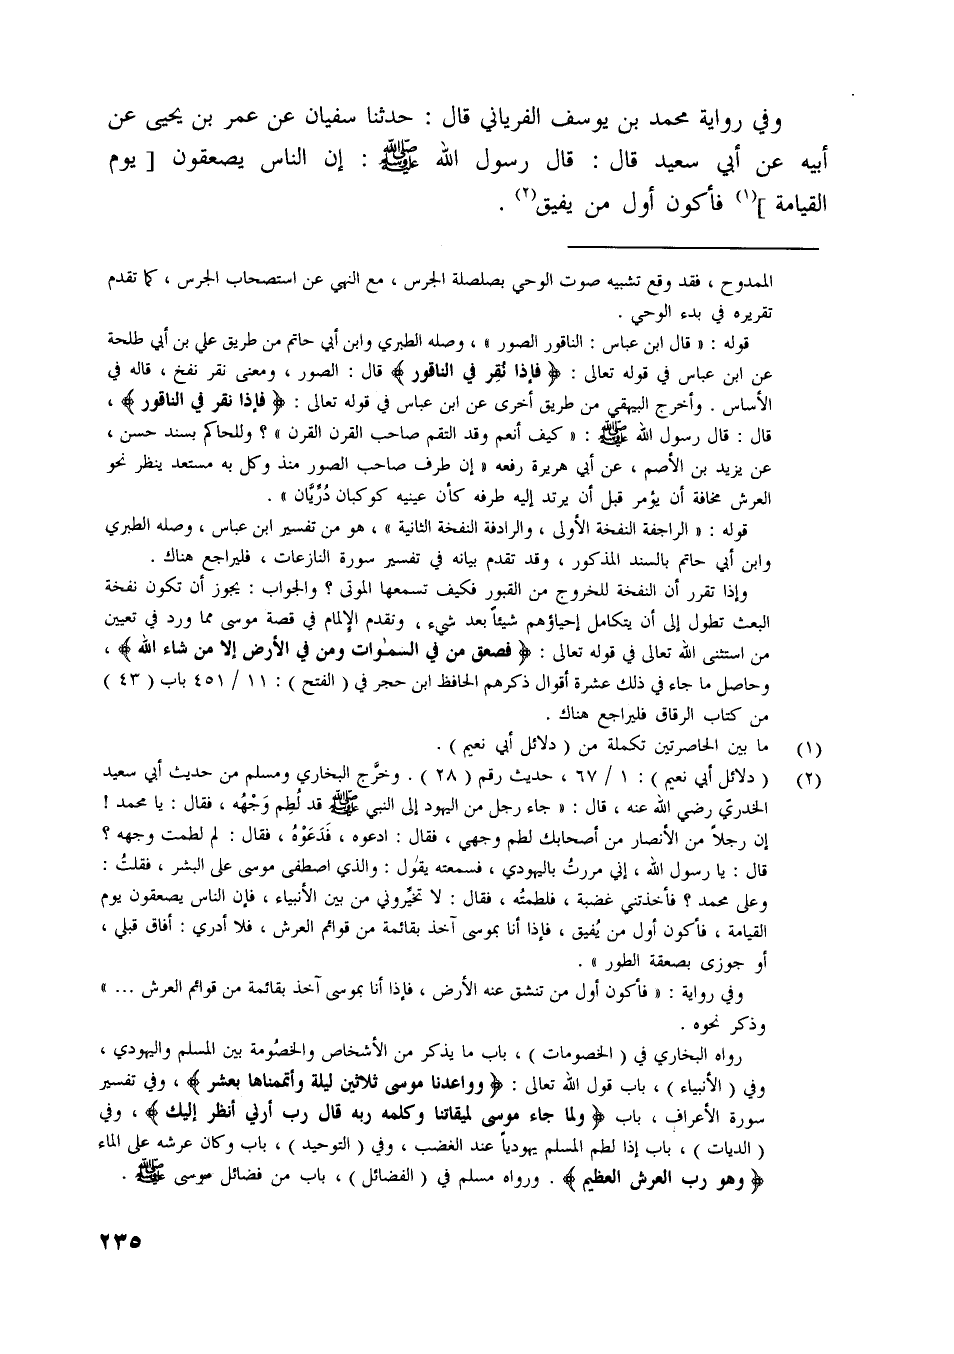 وفي رواية محمد بن يوسف الفرياني قال : حدثنا سفيان عن عمر بن يحيى عن
أبيه عن أبي سعيد قال : قال رسول الله ﷺ : إن الناس يصعقون [ يوم
القيامة ](١) فأكون أول من يفيق(٢) .
الممدوح ، فقد وقع تشبيه صوت الوحي بصلصلة الجرس ، مع النهي عن استصحاب الجرس ، كما تقدم
تقريره في بدء الوحي .
قوله : « قال ابن عباس : الناقور الصور » ، وصله الطبري وابن أبي حاتم من طريق علي بن أبي طلحة
عن ابن عباس في قوله تعالى : ﴿ فإذا نُقِر في الناقور ﴾ قال : الصور ، ومعنى نقر نفخ ، قاله في
الأساس . وأخرج البيهقي من طريق أخرى عن ابن عباس في قوله تعالى : ﴿ فإذا نقر في الناقور ﴾ ،
قال : قال رسول الله ﷺ : « كيف أنعم وقد التقم صاحب القرن القرن » ؟ وللحاكم بسند حسن ،
عن يزيد بن الأصم ، عن أبي هريرة رفعه « إن طرف صاحب الصور منذ وكل به مستعد ينظر نحو
العرش مخافة أن يؤمر قبل أن يرتد إليه طرفه كأن عينيه كوكبان دُرِّيَّان » .
قوله : « الراجفة النفخة الأولى ، والرادفة النفخة الثانية » ، هو من تفسير ابن عباس ، وصله الطبري
وابن أبي حاتم بالسند المذكور ، وقد تقدم بيانه في تفسير سورة النازعات ، فليراجع هناك .
وإذا تقرر أن النفخة للخروج من القبور فكيف تسمعها الموتى ؟ والجواب : يجوز أن تكون نفخة
البعث تطول إلى أن يتكامل إحياؤهم شيئاً بعد شيء ، وتقدم الإلمام في قصة موسى مما ورد في تعيين
من استثنى الله تعالى في قوله تعالى : ﴿ فصعق من في السمٰوات ومن في الأرض إلا من شاء الله ﴾ ،
وحاصل ما جاء في ذلك عشرة أقوال ذكرهم الحافظ ابن حجر في ( الفتح ) : ١١ / ٤٥١ باب ( ٤٣ )
من كتاب الرقاق فليراجع هناك .
(١) ما بين الحاصرتين تكملة من ( دلائل أبي نعيم ) .
(٢) ( دلائل أبي نعيم ) : ١ / ٦٧ ، حديث رقم ( ٢٨ ) . وخرَّج البخاري ومسلم من حديث أبي سعيد
الخدريّ رضي الله عنه ، قال : « جاء رجل من اليهود إلى النبي ﷺ قد لُطِم وَجْهُه ، فقال : يا محمد !
إن رجلاً من الأنصار من أصحابك لطم وجهي ، فقال : ادعوه ، فَدَعَوْهُ ، فقال : لم لطمت وجهه ؟
قال : يا رسول الله ، إني مررتُ باليهودي ، فسمعته يقول : والذي اصطفى موسى على البشر ، فقلتُ :
وعلى محمد ؟ فأخذتني غضبة ، فلطمتُه ، فقال : لا تخيِّروني من بين الأنبياء ، فإن الناس يصعقون يوم
القيامة ، فأكون أول من يُفيق ، فإذا أنا بموسى آخذ بقائمة من قوائم العرش ، فلا أدري : أفاق قبلي ،
أو جوزى بصعقة الطور » .
وفي رواية : « فأكون أول من تنشق عنه الأرض ، فإذا أنا بموسى آخذ بقائمة من قوائم العرش ... »
وذكر نحوه .
رواه البخاري في ( الخصومات ) ، باب ما يذكر من الأشخاص والخصُومة بين المسلم واليهودي ،
وفي ( الأنبياء ) ، باب قول الله تعالى : ﴿ وواعدنا موسى ثلاثين ليلة وأتممناها بعشر ﴾ ، وفي تفسير
سورة الأعراف ، باب ﴿ ولما جاء موسى لميقاتنا وكلمه ربه قال رب أرني أنظر إليك ﴾ ، وفي
( الديات ) ، باب إذا لطم المسلم يهودياً عند الغضب ، وفي ( التوحيد ) ، باب وكان عرشه على الماء
﴿ وهو رب العرش العظيم ﴾ . ورواه مسلم في ( الفضائل ) ، باب من فضائل موسى ﷺ .
٢٣٥